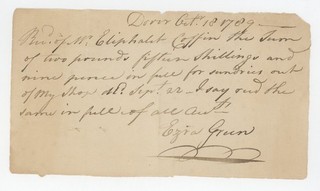 Dover Octr. 18 1789
Recd. of Mr. Eliphalet Coffin the Sum
of two pounds fifteen Shillings and
nine pence in full for sundries out
of My Shop Sept. 22 I say and the
same in full of all
Ezra Green